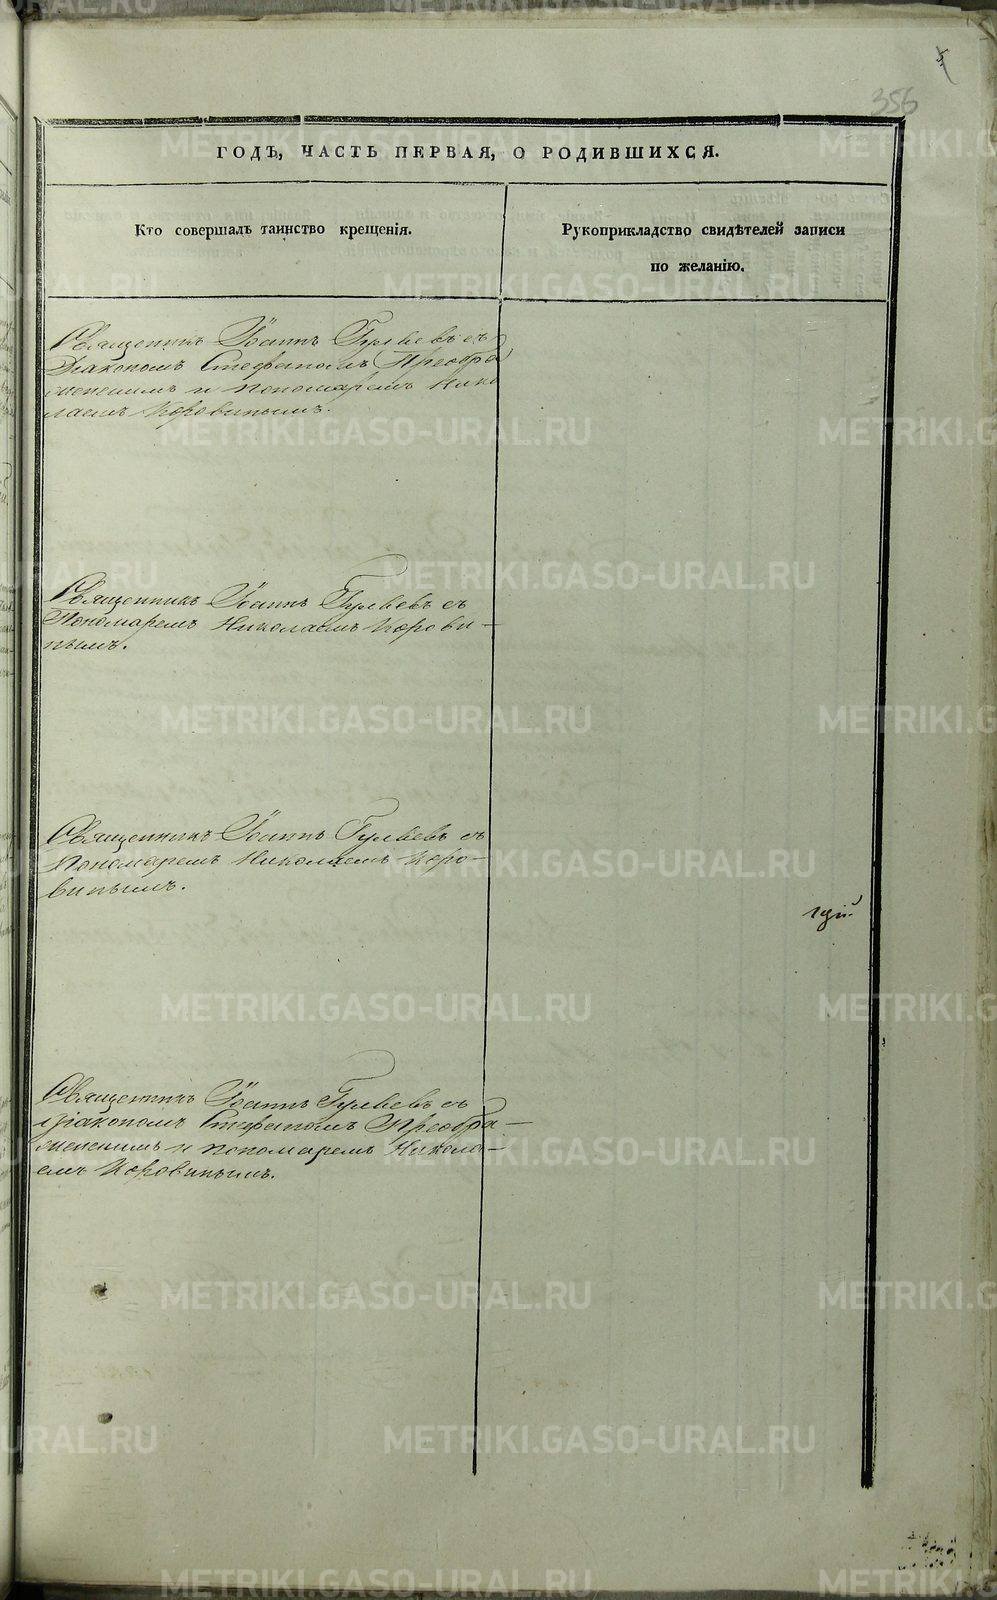 356
ГОДЪ, ЧАСТЬ ПЕРВАЯ, О РОДИВШИХСЯ.
Кто совершалъ таинство крещенія.
Рукоприкладство свидѣтелей записи
по желанію.
Священникъ Іоаннъ Гуляевъ съ
Діакономъ Стефаномъ Преобра
женскимъ и пономаремъ Нико
лаемъ Коровинымъ.
Священникъ Іоаннъ Гуляевъ съ
Пономаремъ Николаемъ Корови-
нымъ.
Священникъ Іоаннъ Гуляевъ съ
Пономаремъ Николаемъ Коро-
винымъ.
Священникъ Іоаннъ Гуляевъ съ
Діакономъ Стефаномъ Преобра-
женскимъ и пономаремъ Никола-
емъ Коровинымъ.
METRIKI.GASO-URAL.RU